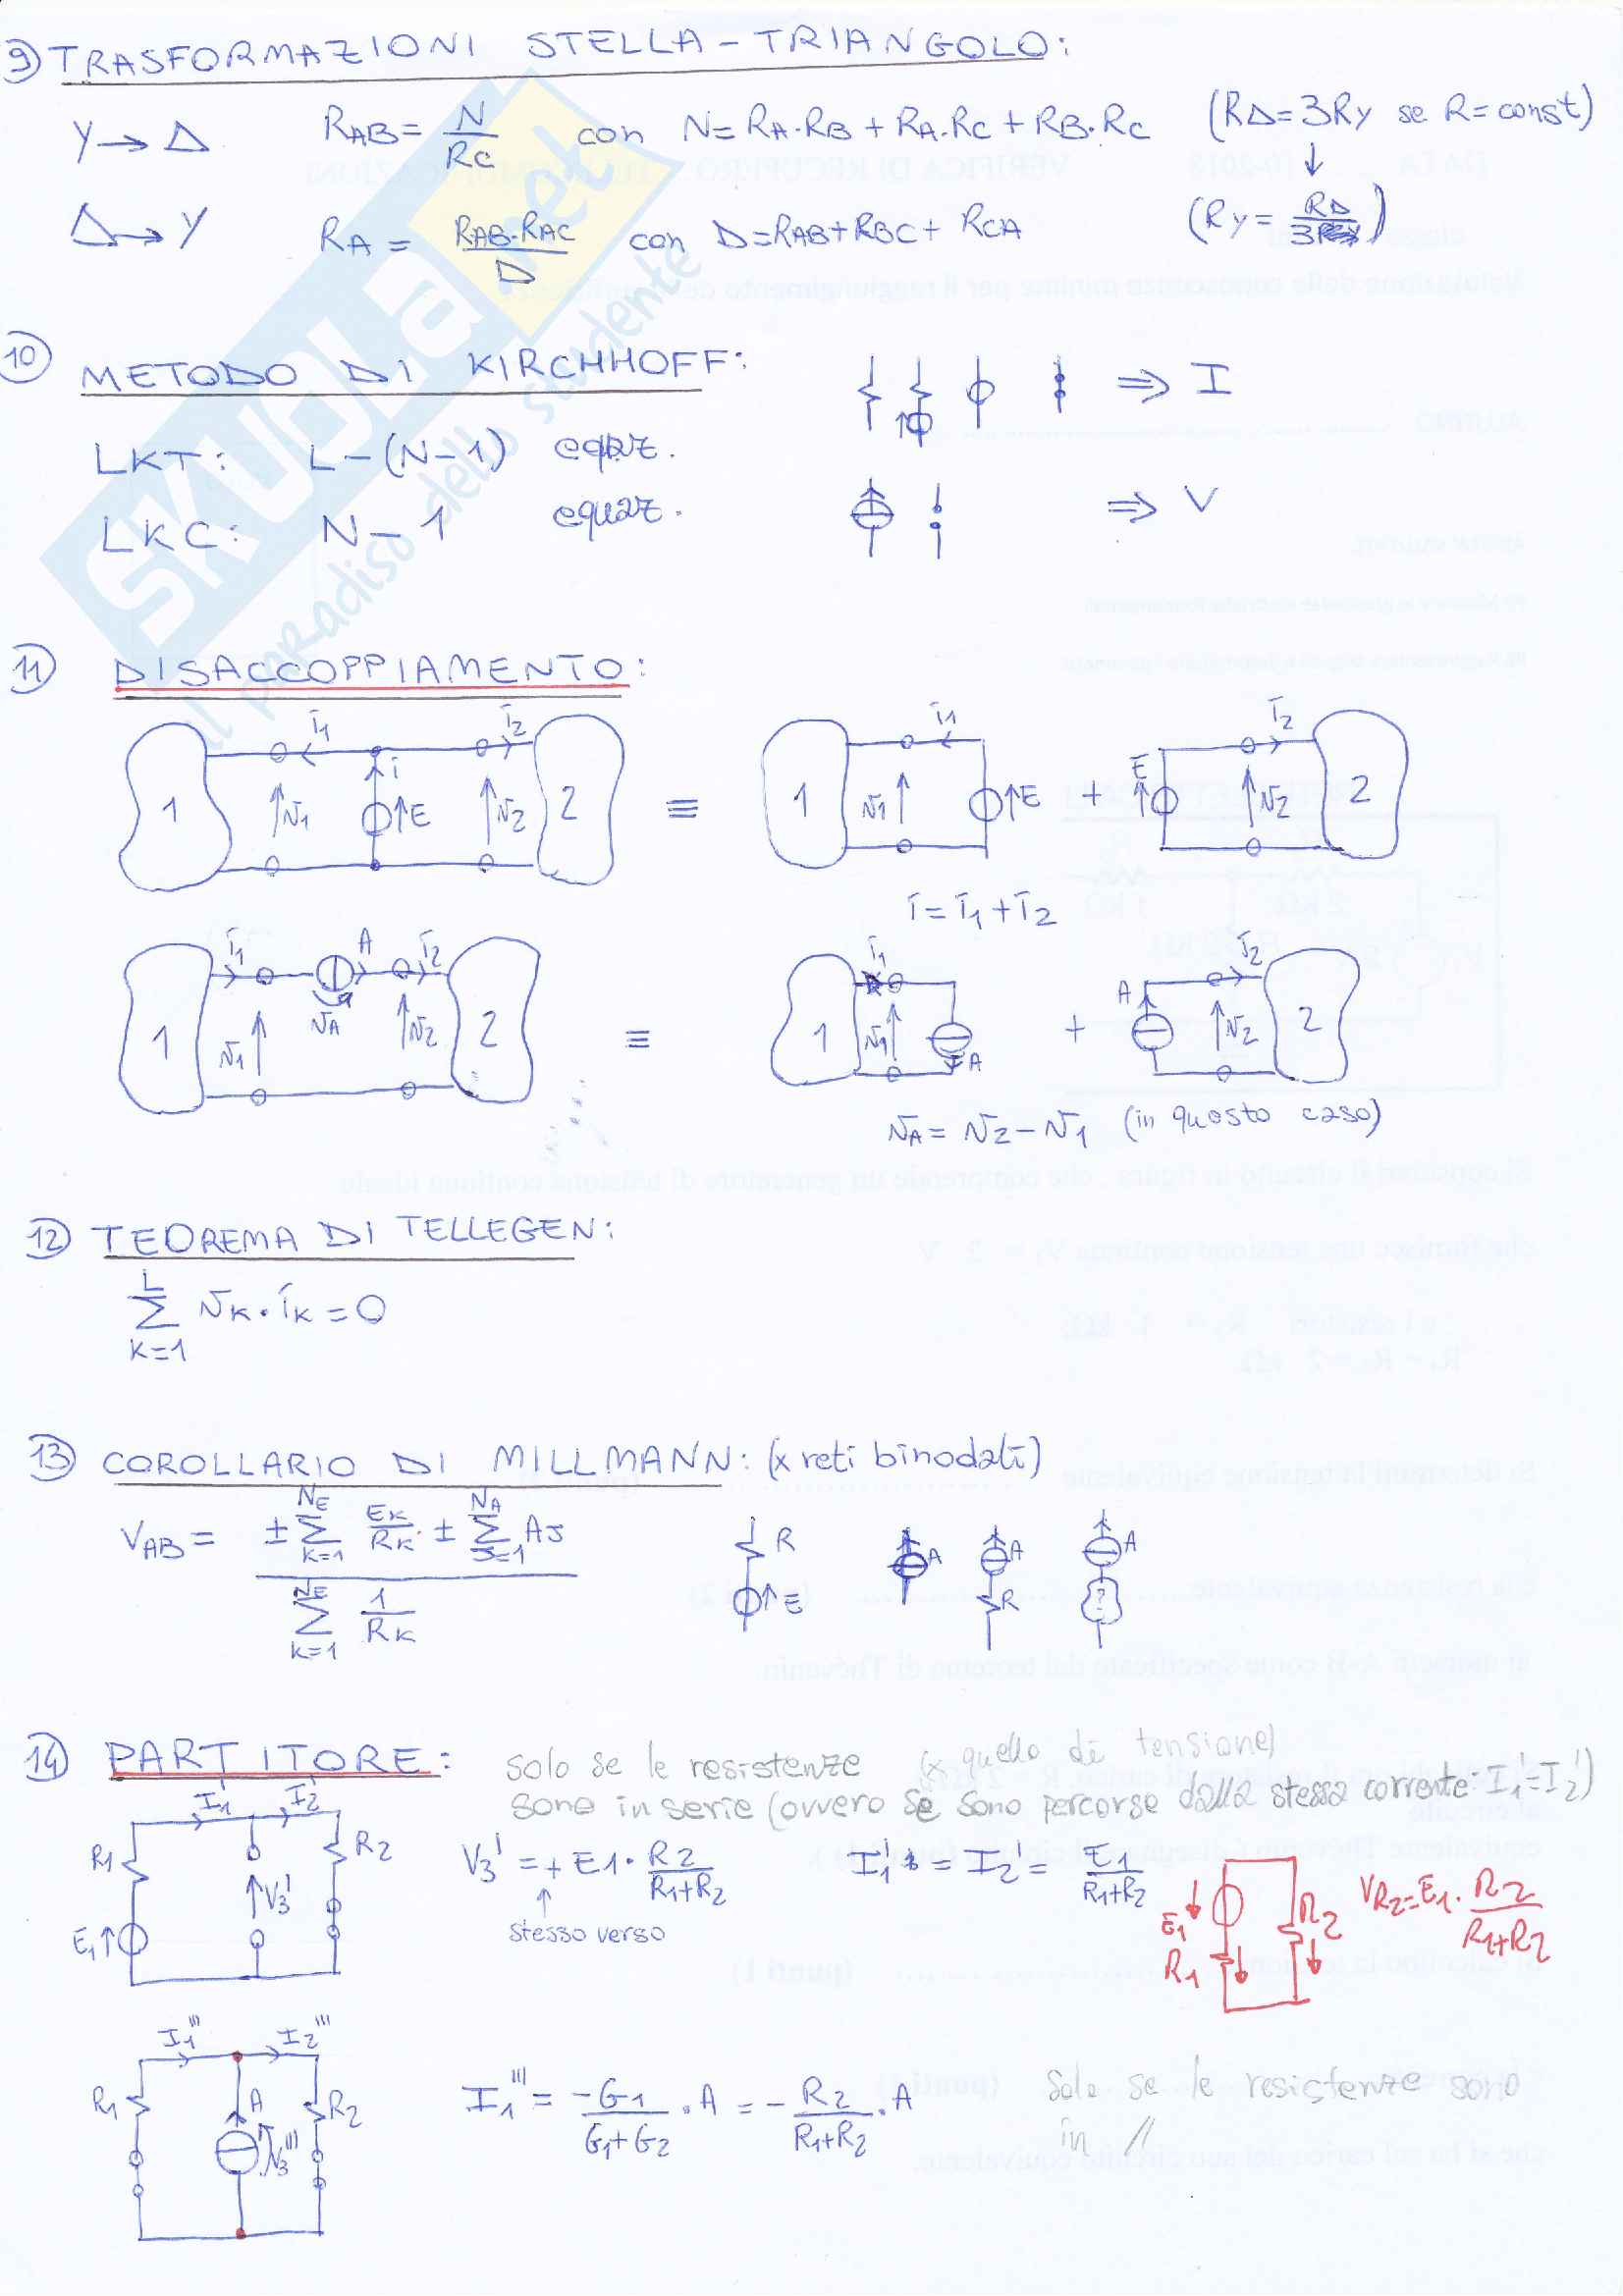 9) TRASFORMAZIONI STELLA-TRIANGOLO:
Y → Δ RAB = N/RC con N = RA·RB + RA·RC + RB·RC (RΔ = 3RY se R = const)
↓
Δ → Y RA = RAB·RAC/D con D = RAB + RBC + RCA (RY = RΔ/3)
10) METODO DI KIRCHHOFF: ⇒ I
LKT: L-(N-1) equaz.
LKC: N-1 equaz. ⇒ V
11) DISACCOPPIAMENTO:
i1 i2 i1 i2
1 v1 i E v2 2 ≡ 1 v1 E + E v2 2
i = i1 + i2
i1 A i2 i1 i2
1 v1 vA v2 2 ≡ 1 v1 A + A v2 2
vA = v2 - v1 (in questo caso)
12) TEOREMA DI TELLEGEN:
L
Σ vK · iK = 0
K=1
13) COROLLARIO DI MILLMANN: (x reti binodali)
VAB = (± Σ(K=1, NE) EK/RK ± Σ(J=1, NA) AJ) / (Σ(K=1, NE) 1/RK)
R E A A R A ?
14) PARTITORE: solo se le resistenze (x quello di tensione)
sono in serie (ovvero se sono percorse dalla stessa corrente: I1' = I2')
I1' I2'
R1 R2 V3' = + E1 · R2/(R1+R2) I1' = I2' = E1/(R1+R2)
E1 V3' ↑
stesso verso
E1 R1 R2 VR2 = E1 · R2/(R1+R2)
I1''' I2'''
R1 A R2 I1''' = -G1/(G1+G2) · A = - R2/(R1+R2) · A Solo se le resistenze sono
V3''' in //
SKUOLA.net
il paradiso dello studente